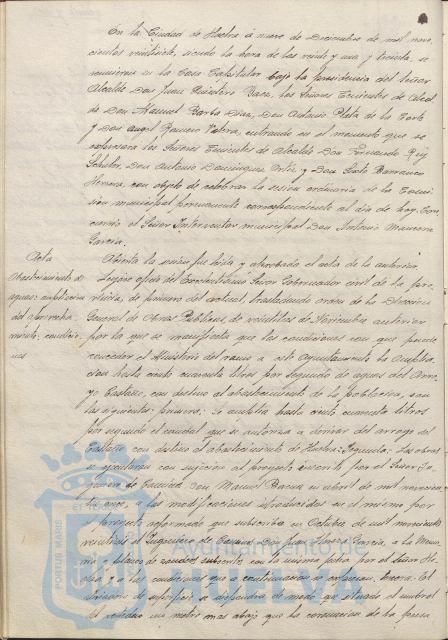 En la Ciudad de Huelva á nueve de Diciembre de mil nove-
cientos veintisiete, siendo la hora de las veinte y una y treinta, se
reunieron en la Casa Capitular bajo la presidencia del Señor
Alcalde Don Juan Quintero Baez, los Señores Tenientes de Alcal-
de Don Manuel Barba Diaz, Don Antonio Plata de la Corte
y Don Angel Romero Valera, entrando en el momento que se
expresara los Señores Tenientes de Alcalde Don Fernando Rey
Don Antonio Dominguez Ortiz y Don Sixto Barranco
Herrera, con objeto de celebrar la sesion ordinaria de la Comi-
sión municipal permanente correspondiente al dia de hoy. Con-
currió el Señor Interventor municipal Don Antonio
Garcia.
Acta
Abierta la sesion fue leida y aprobada el acta de la anterior.
Abastecimiento de
aguas: ampliacion
del aprovecha-
miento, condicio-
nes
Leyose oficio del Excelentisimo Señor Gobernador civil de la pro-
vincia, de primero del actual, trasladando orden de la Direccion
General de Obras Publicas, de veintitres de Noviembre anterior
por la que se manifiesta que las condiciones con que puede
conceder el Ministerio del ramo a este Ayuntamiento la amplia-
cion hasta ciento cuarenta litros por segundo de aguas del Arro-
yo Castaño, con destino al abastecimiento de la poblacion, son
las siguientes: primera: Se amplia hasta ciento cuarenta litros
por segundo el caudal que se autoriza a derivar del arroyo del
Castaño con destino al abastecimiento de Huelva: Segunda: Las obras
se ejecutaran con sujecion al proyecto suscrito por el Inge-
niero de Caminos Don Manuel en abril de mil novecien-
tos once, a las modificaciones introducidas en el mismo por
el proyecto reformado que subscribe en Octubre de mil novecientos
veintitres el Ingeniero de Caminos Don Juan Garcia, a la Memo-
ria y planos subscritos con la misma fecha por el Señor
y a las condiciones que a continuacion se expresan. Tercera: El
de superficie se dispondra de modo que situado el umbral
del un metro mas abajo que la coronacion de la presa
Ayuntamiento de
PORTUS MARIS
ET